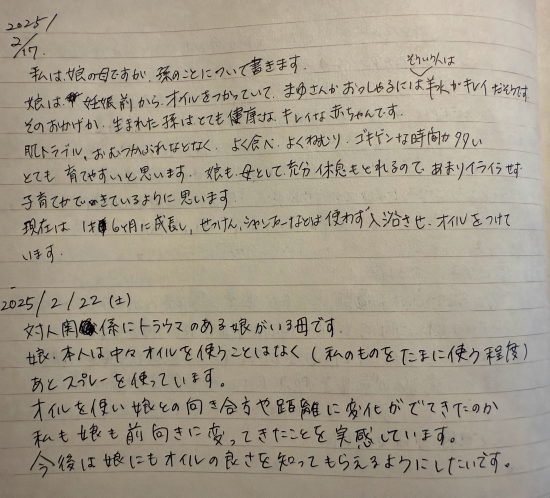 2025/
2/17.
私は、娘の母ですが、孫のことについて書きます。
そういう人は
娘は、妊娠前から、オイルをつかっていて、まゆさんがおっしゃるには羊水がキレイだそうです
そのおかげか、生まれた孫はとても健康な、キレイな赤ちゃんです。
肌トラブル、おむつかぶれなどなく、よく食べ、よくねむり、ゴキゲンな時間が多い
とても育てやすいと思います。娘も、母として、充分休息もとれるので、あまりイライラせず
子育てができているように思います
現在は1才6ヶ月に成長し、せっけん、シャンプーなどは使わず入浴させ、オイルをつけて
います。
2025/2/22(土)
対人関係にトラウマのある娘がいる母です。
娘、本人は中々オイルを使うことはなく(私のものをたまに使う程度)
あとスプレーを使っています。
オイルを使い娘との向き合方や距離に変化がでてきたのか
私も娘も前向きに変ってきたことを実感しています。
今後は娘にもオイルの良さを知ってもらえるようにしたいです。